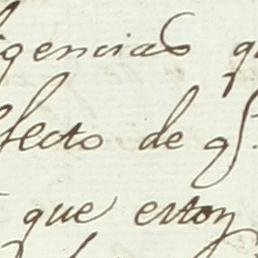 igencias q
fecto de q.
que estoy